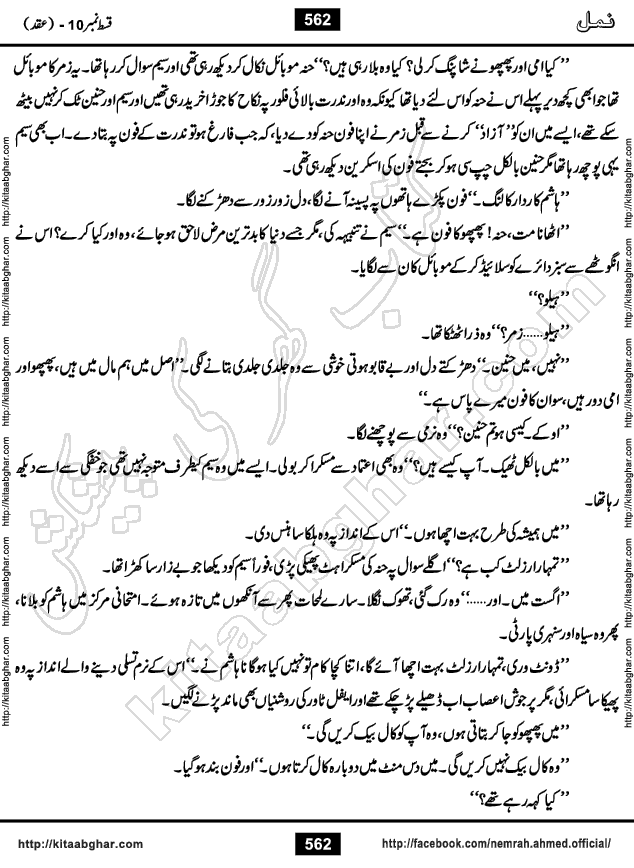 نمل 562 قسط نمبر 10 - (عقد)
”کیا امی اور پھپھو نے شاپنگ کر لی؟ کیا وہ بلا رہی ہیں؟“ حنہ موبائل نکال کر دیکھ رہی تھی اور سیم سوال کر رہا تھا۔ یہ زمر کا موبائل
تھا جو ابھی کچھ دیر پہلے اس نے حنہ کو اس لئے دیا تھا کیونکہ وہ اور ندرت بالائی فلور پہ نکاح کا جوڑا خرید رہی تھیں اور سیم اور حنین ٹک کر نہیں بیٹھ
سکے تھے، ایسے میں ان کو ”آزاد“ کرنے سے قبل زمر نے اپنا فون حنہ کو دے دیا، کہ جب فارغ ہو تو ندرت کے فون پہ بتا دے۔ اب بھی سیم
یہی پوچھ رہا تھا مگر حنین بالکل چپ سی ہو کر بجتے فون کی اسکرین دیکھ رہی تھی۔
”ہاشم کاردار کالنگ۔“ فون پکڑے ہاتھوں پہ پسینہ آنے لگا، دل زور زور سے دھڑکنے لگا۔
”اٹھانا مت، حنہ! پھپھو کا فون ہے۔“ سیم نے تنبیہہ کی، مگر جسے دنیا کا بدترین مرض لاحق ہو جائے، وہ اور کیا کرے؟ اس نے
انگوٹھے سے سبز دائرے کو سلائیڈ کر کے موبائل کان سے لگایا۔
”ہیلو؟“
”ہیلو......زمر؟“ وہ ذرا ٹھٹکا تھا۔
”نہیں، میں حنین۔“ دھڑکتے دل اور بے قابو ہوتی خوشی سے وہ جلدی جلدی بتانے لگی۔ ”اصل میں ہم مال میں ہیں، پھپھو اور
امی دور ہیں، سو ان کا فون میرے پاس ہے۔“
”اوکے۔ کیسی ہو تم حنین؟“ وہ نرمی سے پوچھنے لگا۔
”میں بالکل ٹھیک۔ آپ کیسے ہیں؟“ وہ بھی اعتماد سے مسکرا کر بولی۔ ایسے میں وہ سیم کیطرف متوجہ نہیں تھی جو خفگی سے اسے دیکھ
رہا تھا۔
”میں ہمیشہ کی طرح بہت اچھا ہوں۔“ اس کے انداز پہ وہ ہلکا سا ہنس دی۔
”تمہارا رزلٹ کب ہے؟“ اگلے سوال پہ حنہ کی مسکراہٹ پھیکی پڑی، فوراً سیم کو دیکھا جو بے زار سا کھڑا تھا۔
”اگست میں۔ اور......“ وہ رک گئی، تھوک نگلا۔ سارے لمحات پھر سے آنکھوں میں تازہ ہوئے۔ امتحانی مرکز میں ہاشم کو بلانا،
پھر وہ سیاہ اور سنہری پارٹی۔
”ڈونٹ وری، تمہارا رزلٹ بہت اچھا آئے گا، اتنا کچا کام تو نہیں کیا ہو گا نا ہاشم نے۔“ اس کے نرم تسلی دینے والے انداز پہ وہ
پھیکا سا مسکرائی، مگر پر جوش اعصاب اب ڈھیلے پڑ چکے تھے اور ایفل ٹاور کی روشنیاں بھی ماند پڑنے لگیں۔
”میں پھپھو کو جا کر بتاتی ہوں، وہ آپ کو کال بیک کریں گی۔“
”وہ کال بیک نہیں کریں گی۔ میں دس منٹ میں دوبارہ کال کرتا ہوں۔“ اور فون بند ہو گیا۔
”کیا کہہ رہے تھے؟“
http://kitaabghar.com 562 http://facebook.com/nemrah.ahmed.official/
http://kitaabghar.com http://kitaabghar.com http://kitaabghar.com http://kitaabghar.com http://kitaabghar.com http://kitaabghar.com
http://kitaabghar.com http://kitaabghar.com http://kitaabghar.com http://kitaabghar.com http://kitaabghar.com http://kitaabghar.com
کتاب گھر کی پیشکش
kitaabghar.com